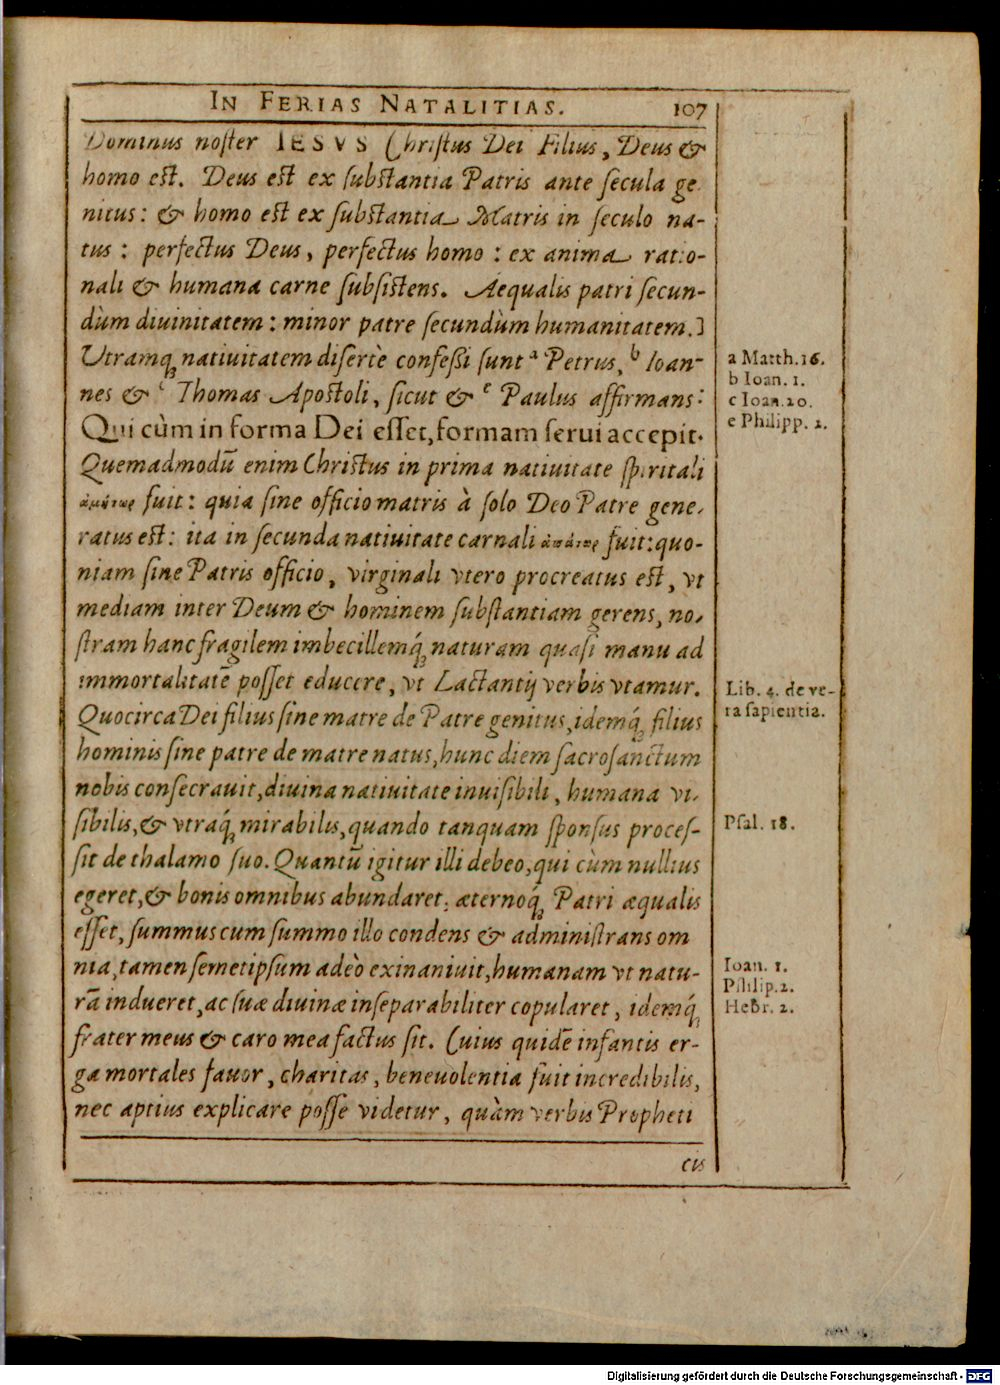 IN FERIAS NATALITIAS. 107
Dominus noſter IESVS Chriſtus Dei Filius, Deus &
homo eſt. Deus eſt ex ſubſtantia Patris ante ſecula ge
nitus: & homo eſt ex ſubſtantia Matris in ſeculo na-
tus: perfectus Deus, perfectus homo: ex anima ratio-
nali & humana carne ſubſiſtens. Aequalis patri ſecun-
dùm diuinitatem: minor patre ſecundùm humanitatem.]
Utramq́ natiuitatem diſertè confeßi ſunt a Petrus, b Ioan-
nes & c Thomas Apoſtoli, ſicut & e Paulus affirmans:
Qui cùm in forma Dei eſſet, formam ſerui accepit.
Quemadmodū enim Chriſtus in prima natiuitate ſpiritali
ἀμήτωρ fuit: quia ſine officio matris à ſolo Deo Patre gene-
ratus eſt: ita in ſecunda natiuitate carnali ἀπάτωρ fuit: quo-
niam ſine Patris officio, virginali vtero procreatus eſt, vt
mediam inter Deum & hominem ſubſtantiam gerens, no-
ſtram hanc fragilem imbecillemq́ naturam quaſi manu ad
immortalitatē poſſet educere, vt Lactantij verbis vtamur.
Quocirca Dei filius ſine matre de Patre genitus, idemq́ filius
hominis ſine patre de matre natus, hunc diem ſacroſanctum
nobis conſecrauit, diuina natiuitate inuiſibili, humana vi-
ſibilis, & vtraq́ mirabilis, quando tanquam ſponſus proceſ-
ſit de thalamo ſuo. Quantū igitur illi debeo, qui cùm nullius
egeret, & bonis omnibus abundaret, æternoq́ Patri æqualis
eſſet, ſummus cum ſummo illo condens & adminiſtrans om
nia, tamen ſemetipſum adeò exinaniuit, humanam vt natu-
rā indueret, ac ſuæ diuinæ inſeparabiliter copularet, idemq́
frater meus & caro mea factus ſit. Cuius quidē infantis er-
ga mortales fauor, charitas, beneuolentia fuit incredibilis,
nec aptius explicare poſſe videtur, quàm verbis Propheti
cis
a Matth. 16.
b Ioan. 1.
c Ioan. 20.
e Philipp. 2.
Lib. 4. de ve-
ra ſapientia.
Pſal. 18.
Ioan. 1.
Philip. 2.
Hebr. 2.
Digitalisierung gefördert durch die Deutsche Forschungsgemeinschaft - DFG